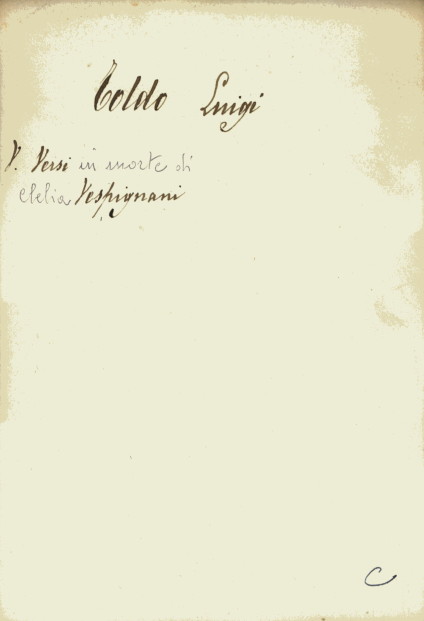 Toldo Luigi
V. Versi in morte di
Clelia Vespignani
C